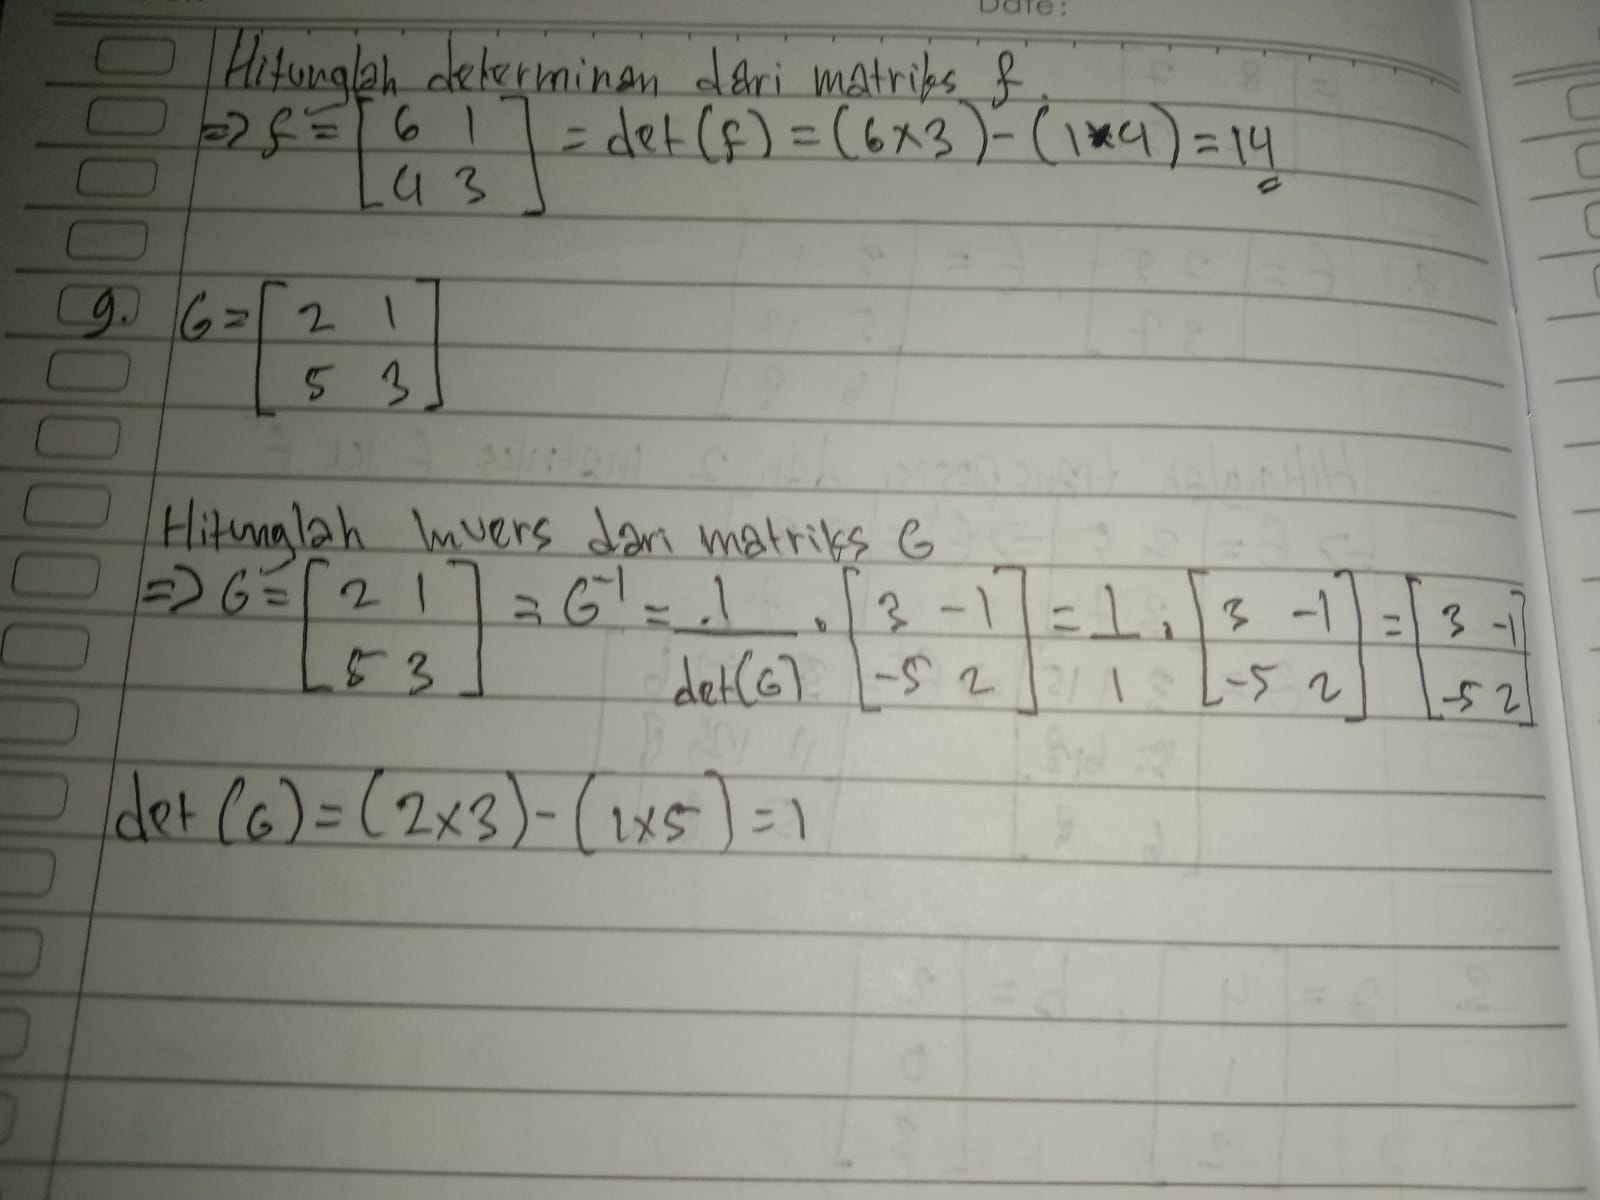 Date:
Hitunglah determinan dari matriks f.
=> f = [ 6 1 ] = det (f) = (6x3) - (1x4) = 14
[ 4 3 ]
g. G = [ 2 1 ]
[ 5 3 ]
Hitunglah Invers dari matriks G
=> G = [ 2 1 ] = G⁻¹ = 1 . [ 3 -1 ] = 1 . [ 3 -1 ] = [ 3 -1 ]
[ 5 3 ] det(G) [ -5 2 ] 1 [ -5 2 ] [ -5 2 ]
det (G) = (2x3) - (1x5) = 1